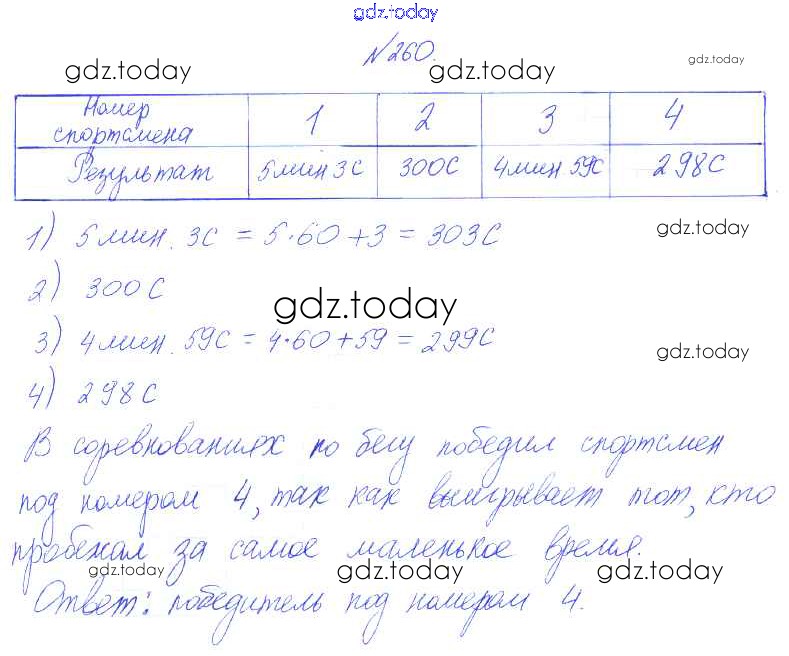 gdz.today
№260.
gdz.today gdz.today gdz.today
Номер спортсмена 1 2 3 4
Результат 5 мин 3 с 300 с 4 мин. 59 с 298 с
1) 5 мин. 3 с = 5·60+3 = 303 с
gdz.today
2) 300 с
gdz.today
3) 4 мин. 59 с = 4·60+59 = 299 с
gdz.today
4) 298 с
В соревнованиях по бегу победил спортсмен
под номером 4, так как выигрывает тот, кто
пробежал за самое маленькое время.
gdz.today gdz.today gdz.today
Ответ: победитель под номером 4.